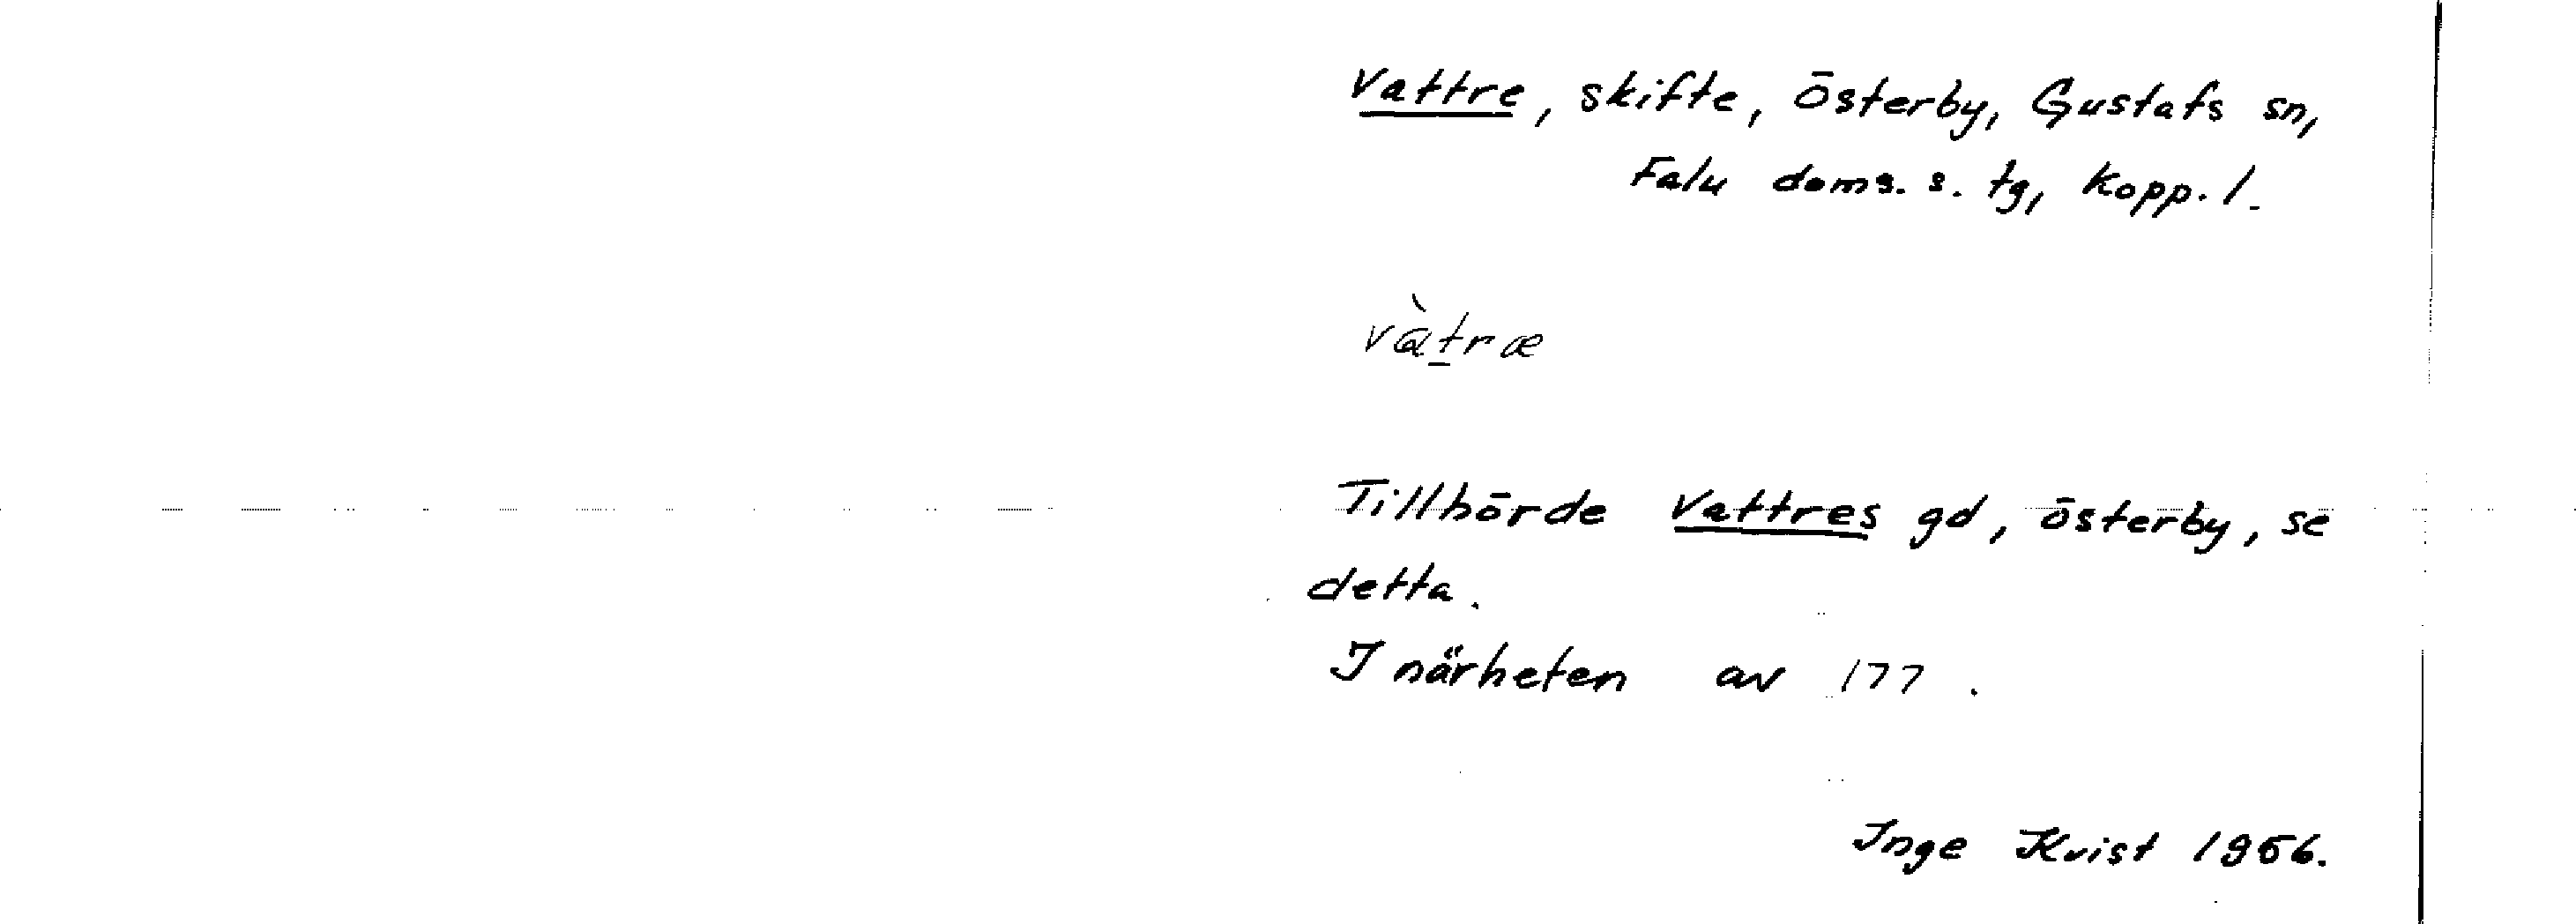 Vattre, skifte, Österby, Gustafs sn,
Falu doms. s. tg, Kopp. l.
vàt̲ræ
Tillhörde Vattres gd, Österby, se
detta.
I närheten av 177.
Inge Kvist 1956.